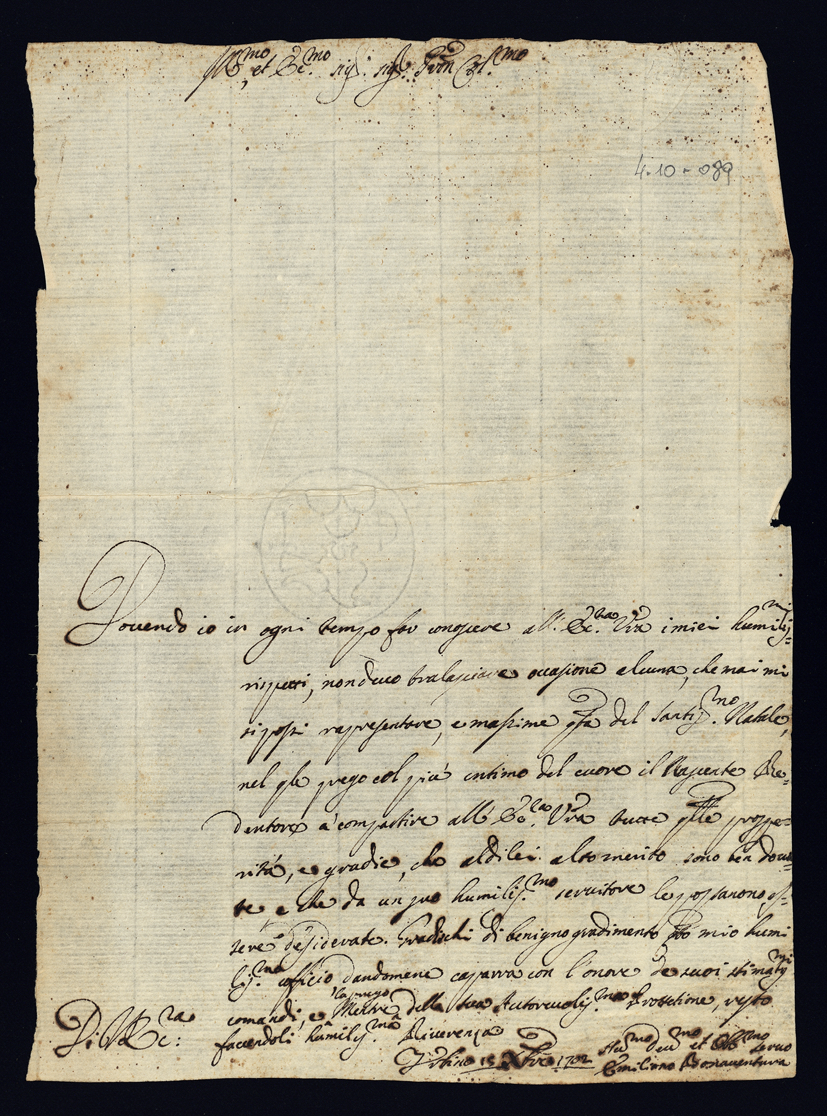 Ill.mo et Ecc.mo Sig.r Sig.r Pron Col.mo
4-10-089
Dovendo io in ogni tempo far conoscere all' Ecc.za V'ra i miei humiliss.mi
rispetti, non devo tralasciare occasione alcuna, che mai mi
si possi rapresentare, e massime q'sta del Santiss.mo Natale,
nel q'le prego col più intimo del cuore il Nascente Re-
dentore à compartire all' Ecc.za V'ra tutte q'lle prospe-
rità, e gradie, che al di lei alto merito sono ben dovu-
te e che da un suo humiliss.mo servitore le possano es-
sere desiderate. Gradischi di benigno gradimento q'sto mio humi
liss.mo officio dandomene caparra con l'onore de suoi stimatiss.mi
comandi, e la prego della sua Autorevoliss.ma Protetione, resto
facendoli humiliss.ma Riverenza
Di V. Ecc.za:
Urbino 15 Xbre 1702
Hu.mo Dev.mo et Obb.mo Servo
Emiliano Bonaventura